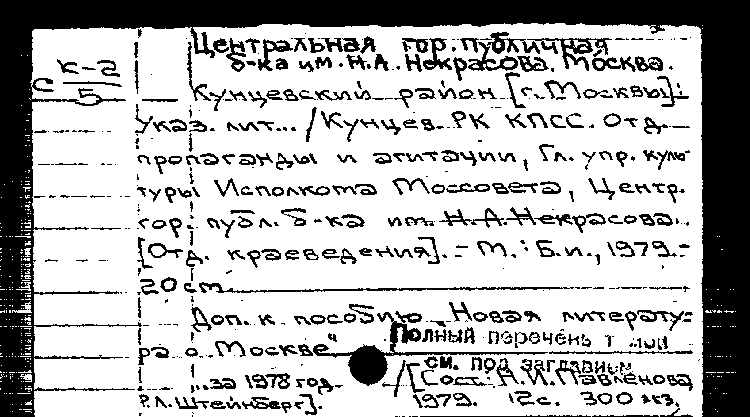 Центральная гор. публичная
б-ка им. Н.А. Некрасова. Москва.
С К-2
5
Кунцевский район [г. Москвы]:
Указ. лит... / Кунцев. РК КПСС. Отд.
пропаганды и агитации, Гл. упр. куль-
туры Исполкома Моссовета, Центр.
гор. публ. б-ка им. Н.А. Некрасова.
[Отд. краеведения]. - М.: Б.и., 1979.-
20 см.
Доп. к пособию "Новая литерату-
ра о Москве"
Полный перечень
см. под заглавием
...за 1978 год.
/ [Сост.: Н.И. Павленова,
Р.Л. Штейнберг].
1979. 12с. 300 экз.